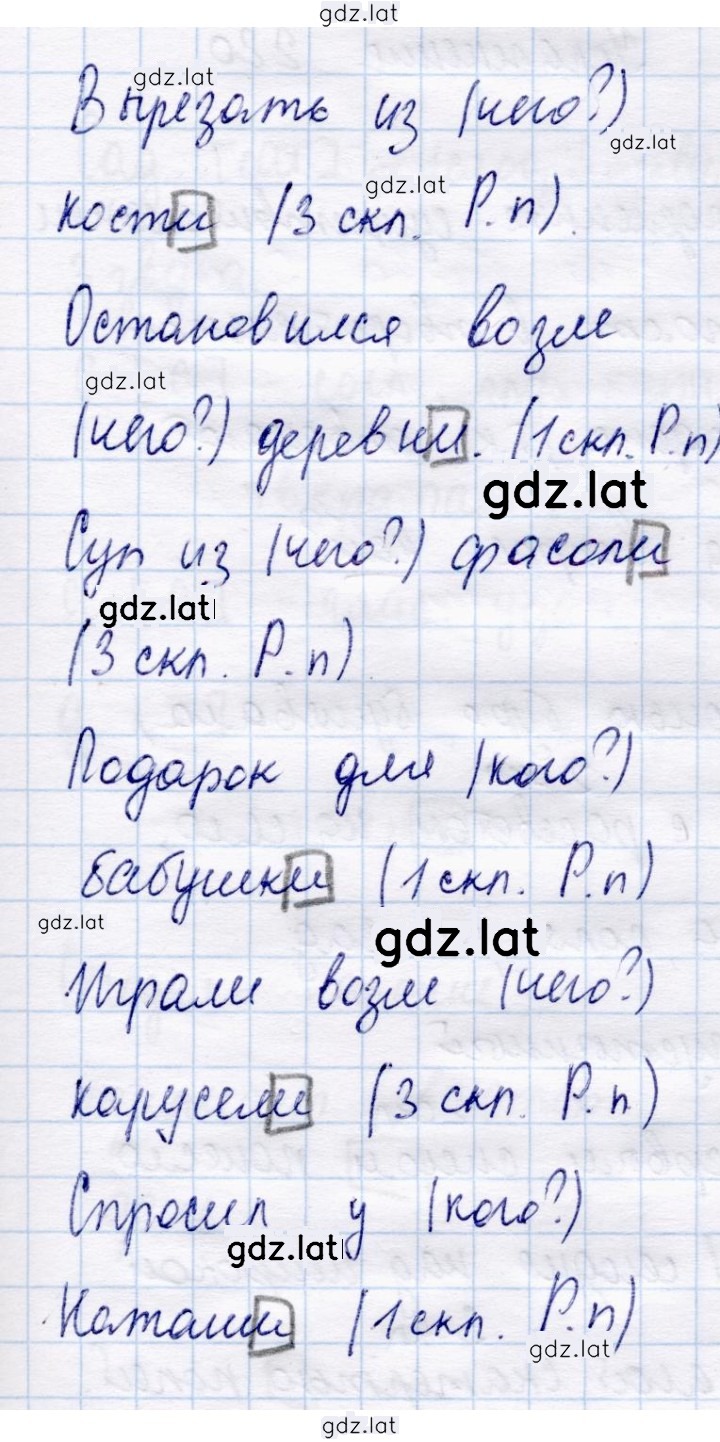 gdz.lat
gdz.lat
Вырезать из (чего?)
gdz.lat
gdz.lat
кости (3 скл. Р.п).
Остановился возле
gdz.lat
(чего?) деревни. (1 скл. Р.п)
gdz.lat
Суп из (чего?) фасоли
gdz.lat
(3 скл. Р.п)
Подарок для (кого?)
бабушки (1 скл. Р.п)
gdz.lat
gdz.lat
Играли возле (чего?)
карусели (3 скл. Р.п)
Спросил у (кого?)
gdz.lat
Наташи (1 скл. Р.п)
gdz.lat
gdz.lat